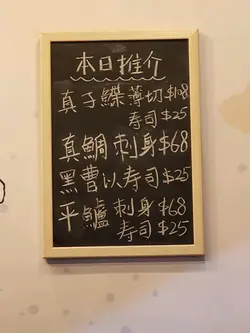 本日推介
真子鰈薄切$108
寿司$25
真鯛刺身$68
黑曹以寿司$25
平鱸刺身$68
寿司$25